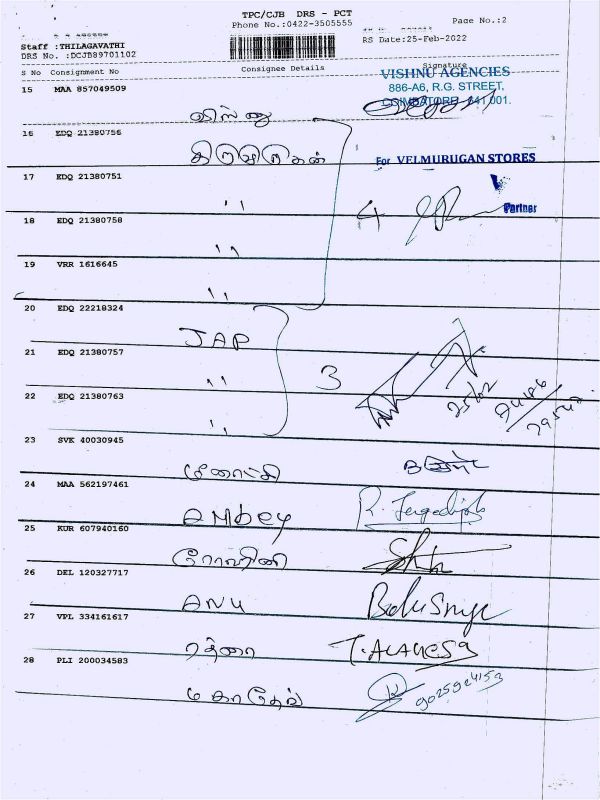 TPC/CJB DRS - PCT
Phone No.:0422-3505555 Page No.:2
RS Date:25-Feb-2022
Staff :THILAGAVATHI
DRS No. :DCJB89701102
S No Consignment No Consignee Details Signature
VISHNU AGENCIES
886-A6, R.G. STREET,
COIMBATORE 641 001.
15 MAA 857049509
விஸ்னு
16 EDQ 21380756
For VELMURUGAN STORES
17 EDQ 21380751
" Partner
18 EDQ 21380758
4
"
19 VRR 1616645
"
20 EDQ 22218324
JAP
21 EDQ 21380757
" 3
25/02
22 EDQ 21380763
"
23 SVK 40030945
மீனாட்சி
24 MAA 562197461
AMbey
25 KUR 607940160
26 DEL 120327717
ANU
27 VPL 334161617
28 PLI 200034583
மகாதேவ் 9025924153